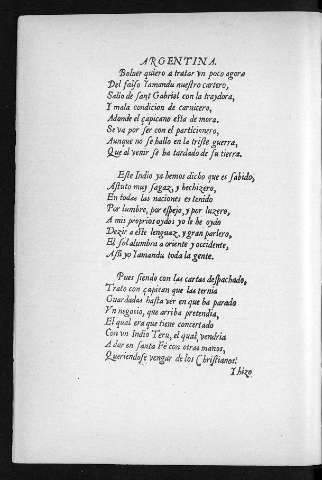 ARGENTINA.
Boluer quiero a tratar vn poco agora
Del falso Yamandu nuestro cartero,
Salio de sant Gabriel con la traydora,
Y mala condicion de carnicero,
Adonde el çapicano esta de mora.
Se va por ser con el particionero,
Aunque no se hallo en la triste guerra,
Que al venir se ha tardado de su tierra.
Este Indio ya hemos dicho que es sabido,
Astuto muy sagaz, y hechizero,
En todas las naciones es tenido
Por lumbre, por espejo, y por luzero,
A mis proprios oydos yo le he oydo
Dezir a este lenguaz, y gran parlero,
El sol alumbra a oriente y occidente,
Assi yo Yamandu toda la gente.
Pues siendo con las cartas despachado,
Trato con çapican que las ternia
Guardadas hasta ver en que ha parado
Vn negocio, que arriba pretendia,
El qual era que tiene concertado
Con vn Indio Teru, el qual vendria
A dar en santa Fè con otras manos,
Queriendose vengar de los Christianos.
Y hizo